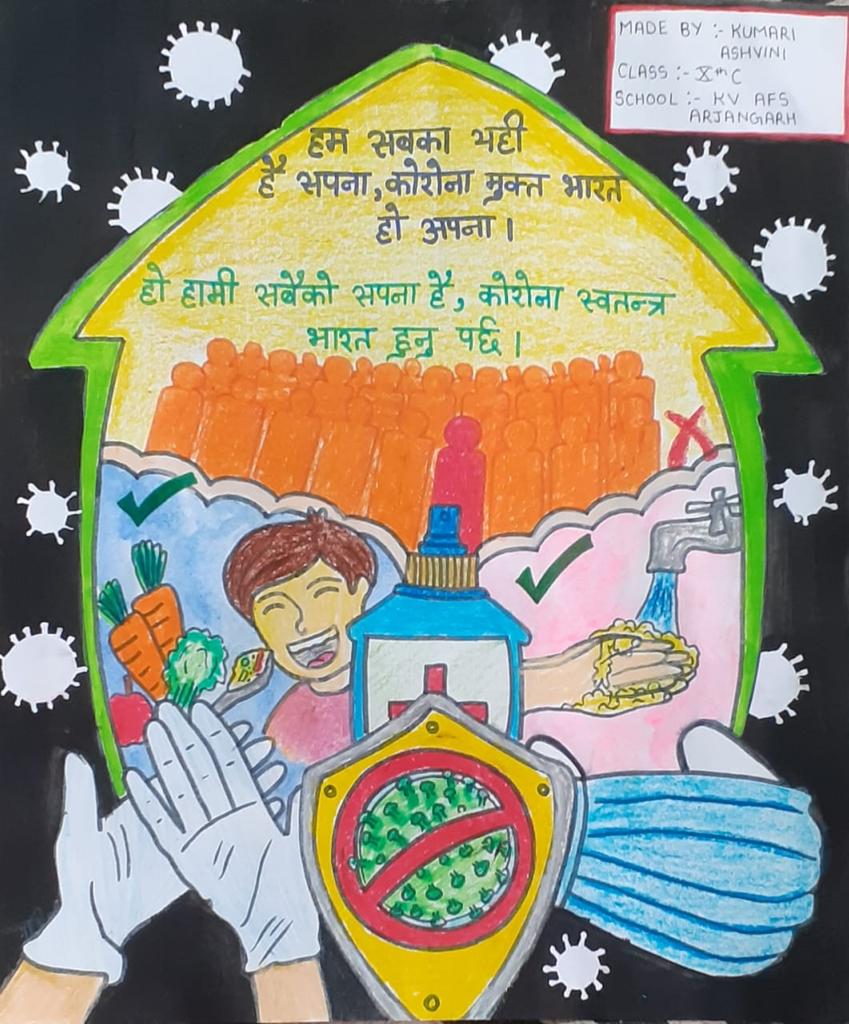 MADE BY :- KUMARI
ASHVINI
CLASS :- Xth C
SCHOOL :- KV AFS
ARJANGARH
हम सबका यही
है सपना, कोरोना मुक्त भारत
हो अपना।
हो हामी सबैको सपना है, कोरोना स्वतन्त्र
भारत हुनु पर्छ।